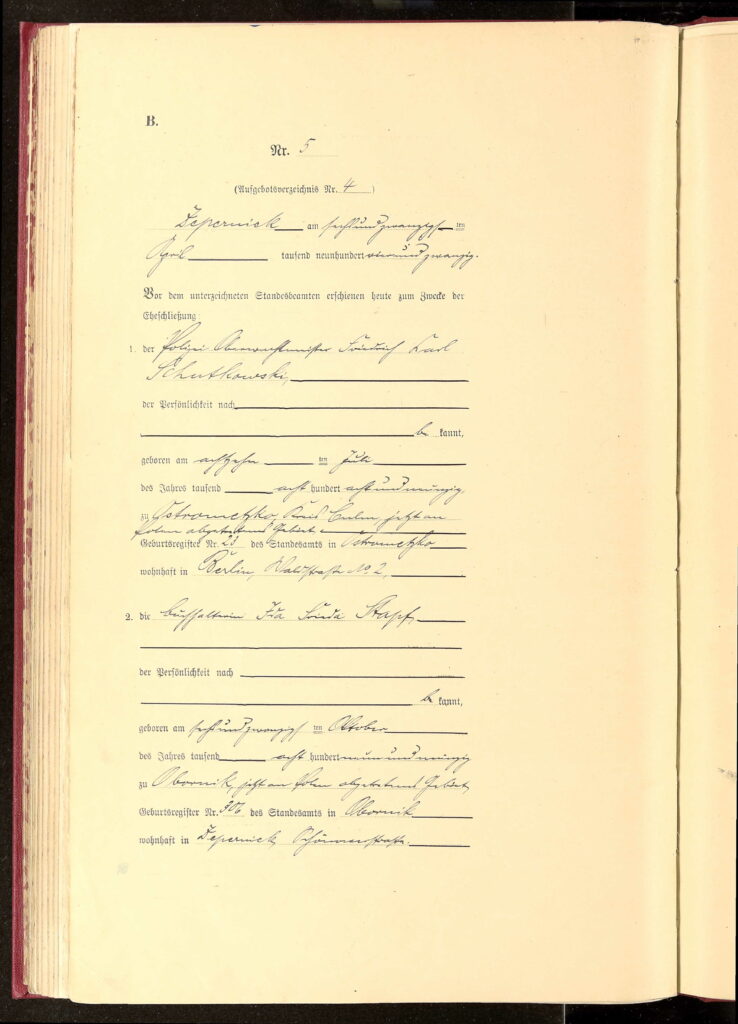 B.
Nr. 5
(Aufgebotsverzeichnis Nr. 4)
Zepernick am sechsundzwanzigsten
April tausend neunhundert vierundzwanzig.
Vor dem unterzeichneten Standesbeamten erschienen heute zum Zwecke der
Eheschließung:
1. der Polizei Oberwachtmeister Friedrich Karl
Schutkowski,
der Persönlichkeit nach
be kannt,
geboren am achtzehn ten Juli
des Jahres tausend acht hundert achtundneunzig
zu Ostrometzko, Kreis Culm, jetzt an
Polen abgetretenes Gebiet
Geburtsregister Nr. 23 des Standesamts in Ostrometzko
wohnhaft in Berlin, Waldstraße No. 2,
2. die Buchhalterin Ida Frieda Stapf,
der Persönlichkeit nach
be kannt,
geboren am sechsundzwanzigsten Oktober
des Jahres tausend acht hundert neunundneunzig
zu Obornik, jetzt an Polen abgetretenes Gebiet,
Geburtsregister Nr. 306 des Standesamts in Obornik
wohnhaft in Zepernick,